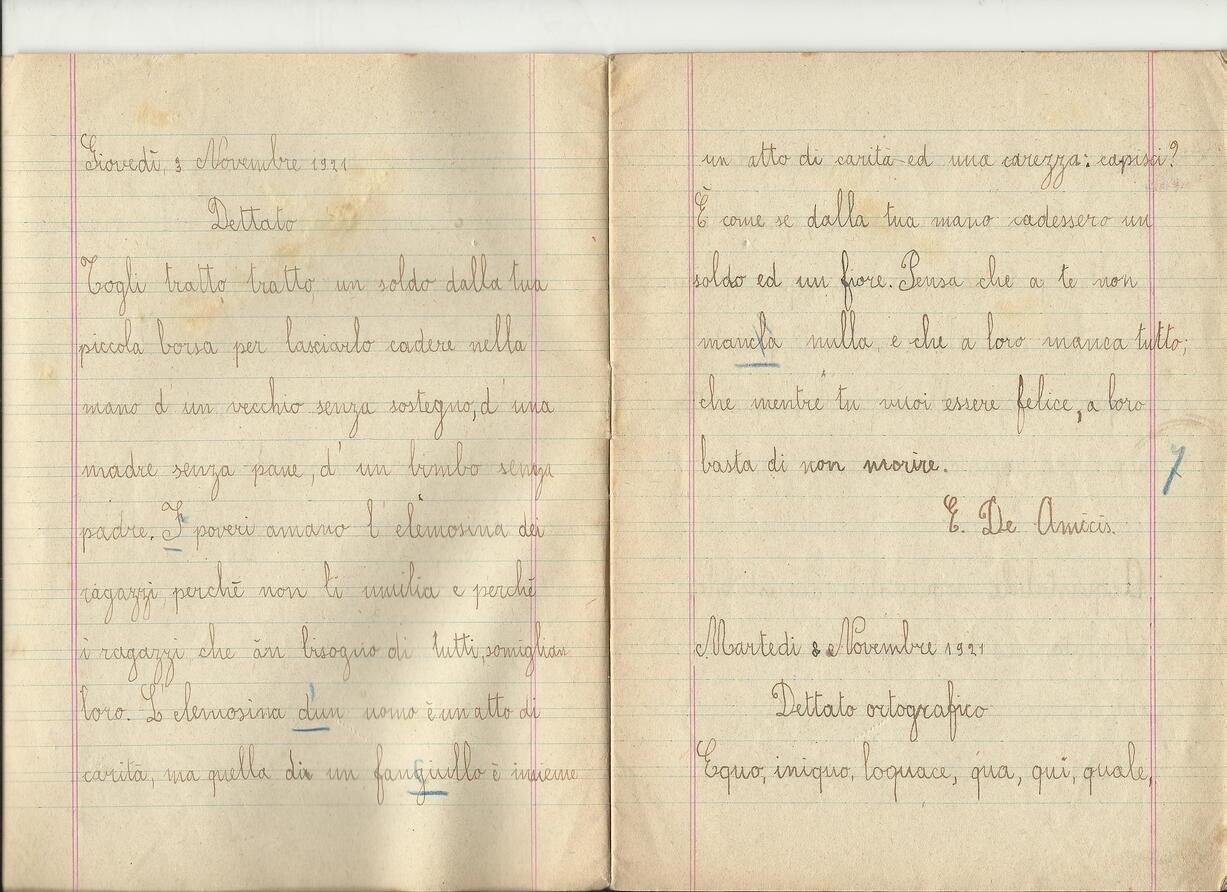 Giovedì, 3 Novembre 1921
Dettato
Togli tratto, tratto, un soldo dalla tua
piccola borsa per lasciarlo cadere nella
mano d' un vecchio senza sostegno, d' una
madre senza pane, d' un bimbo senza
padre. I poveri amano l' elemosina dei
ragazzi, perchè non li umilia e perchè
i ragazzi, che àn bisogno di tutti, somiglian
loro. L' elemosina d'un uomo è un atto di
carità, ma quella di un fangiullo è insieme
un atto di carità ed una carezza: capisci?
È come se dalla tua mano cadessero un
soldo ed un fiore. Pensa che a te non
mancha nulla, e che a loro manca tutto;
che mentre tu vuoi essere felice, a loro
basta di non morire.
7
E. De Amicis.
Martedì 8 Novembre 1921
Dettato ortografico
Equo, iniquo, loquace, qua, qui, quale,